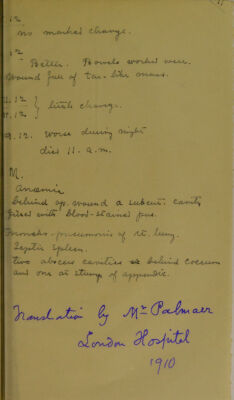 12
no marked change.
12
Better. Bowels worked well.
Wound full of tar-like mass.
12 } little change.
12.
12. worse during night
died 11. a.m.
M.
Anæmia
behind op. wound a subcut. cavity
filled with blood-stained pus.
Broncho-pneumonia of rt. lung.
Septic spleen.
two abscess cavities behind coecum
and one at stump of appendix.
Translation by Mr Palmaer
London Hospital
1910